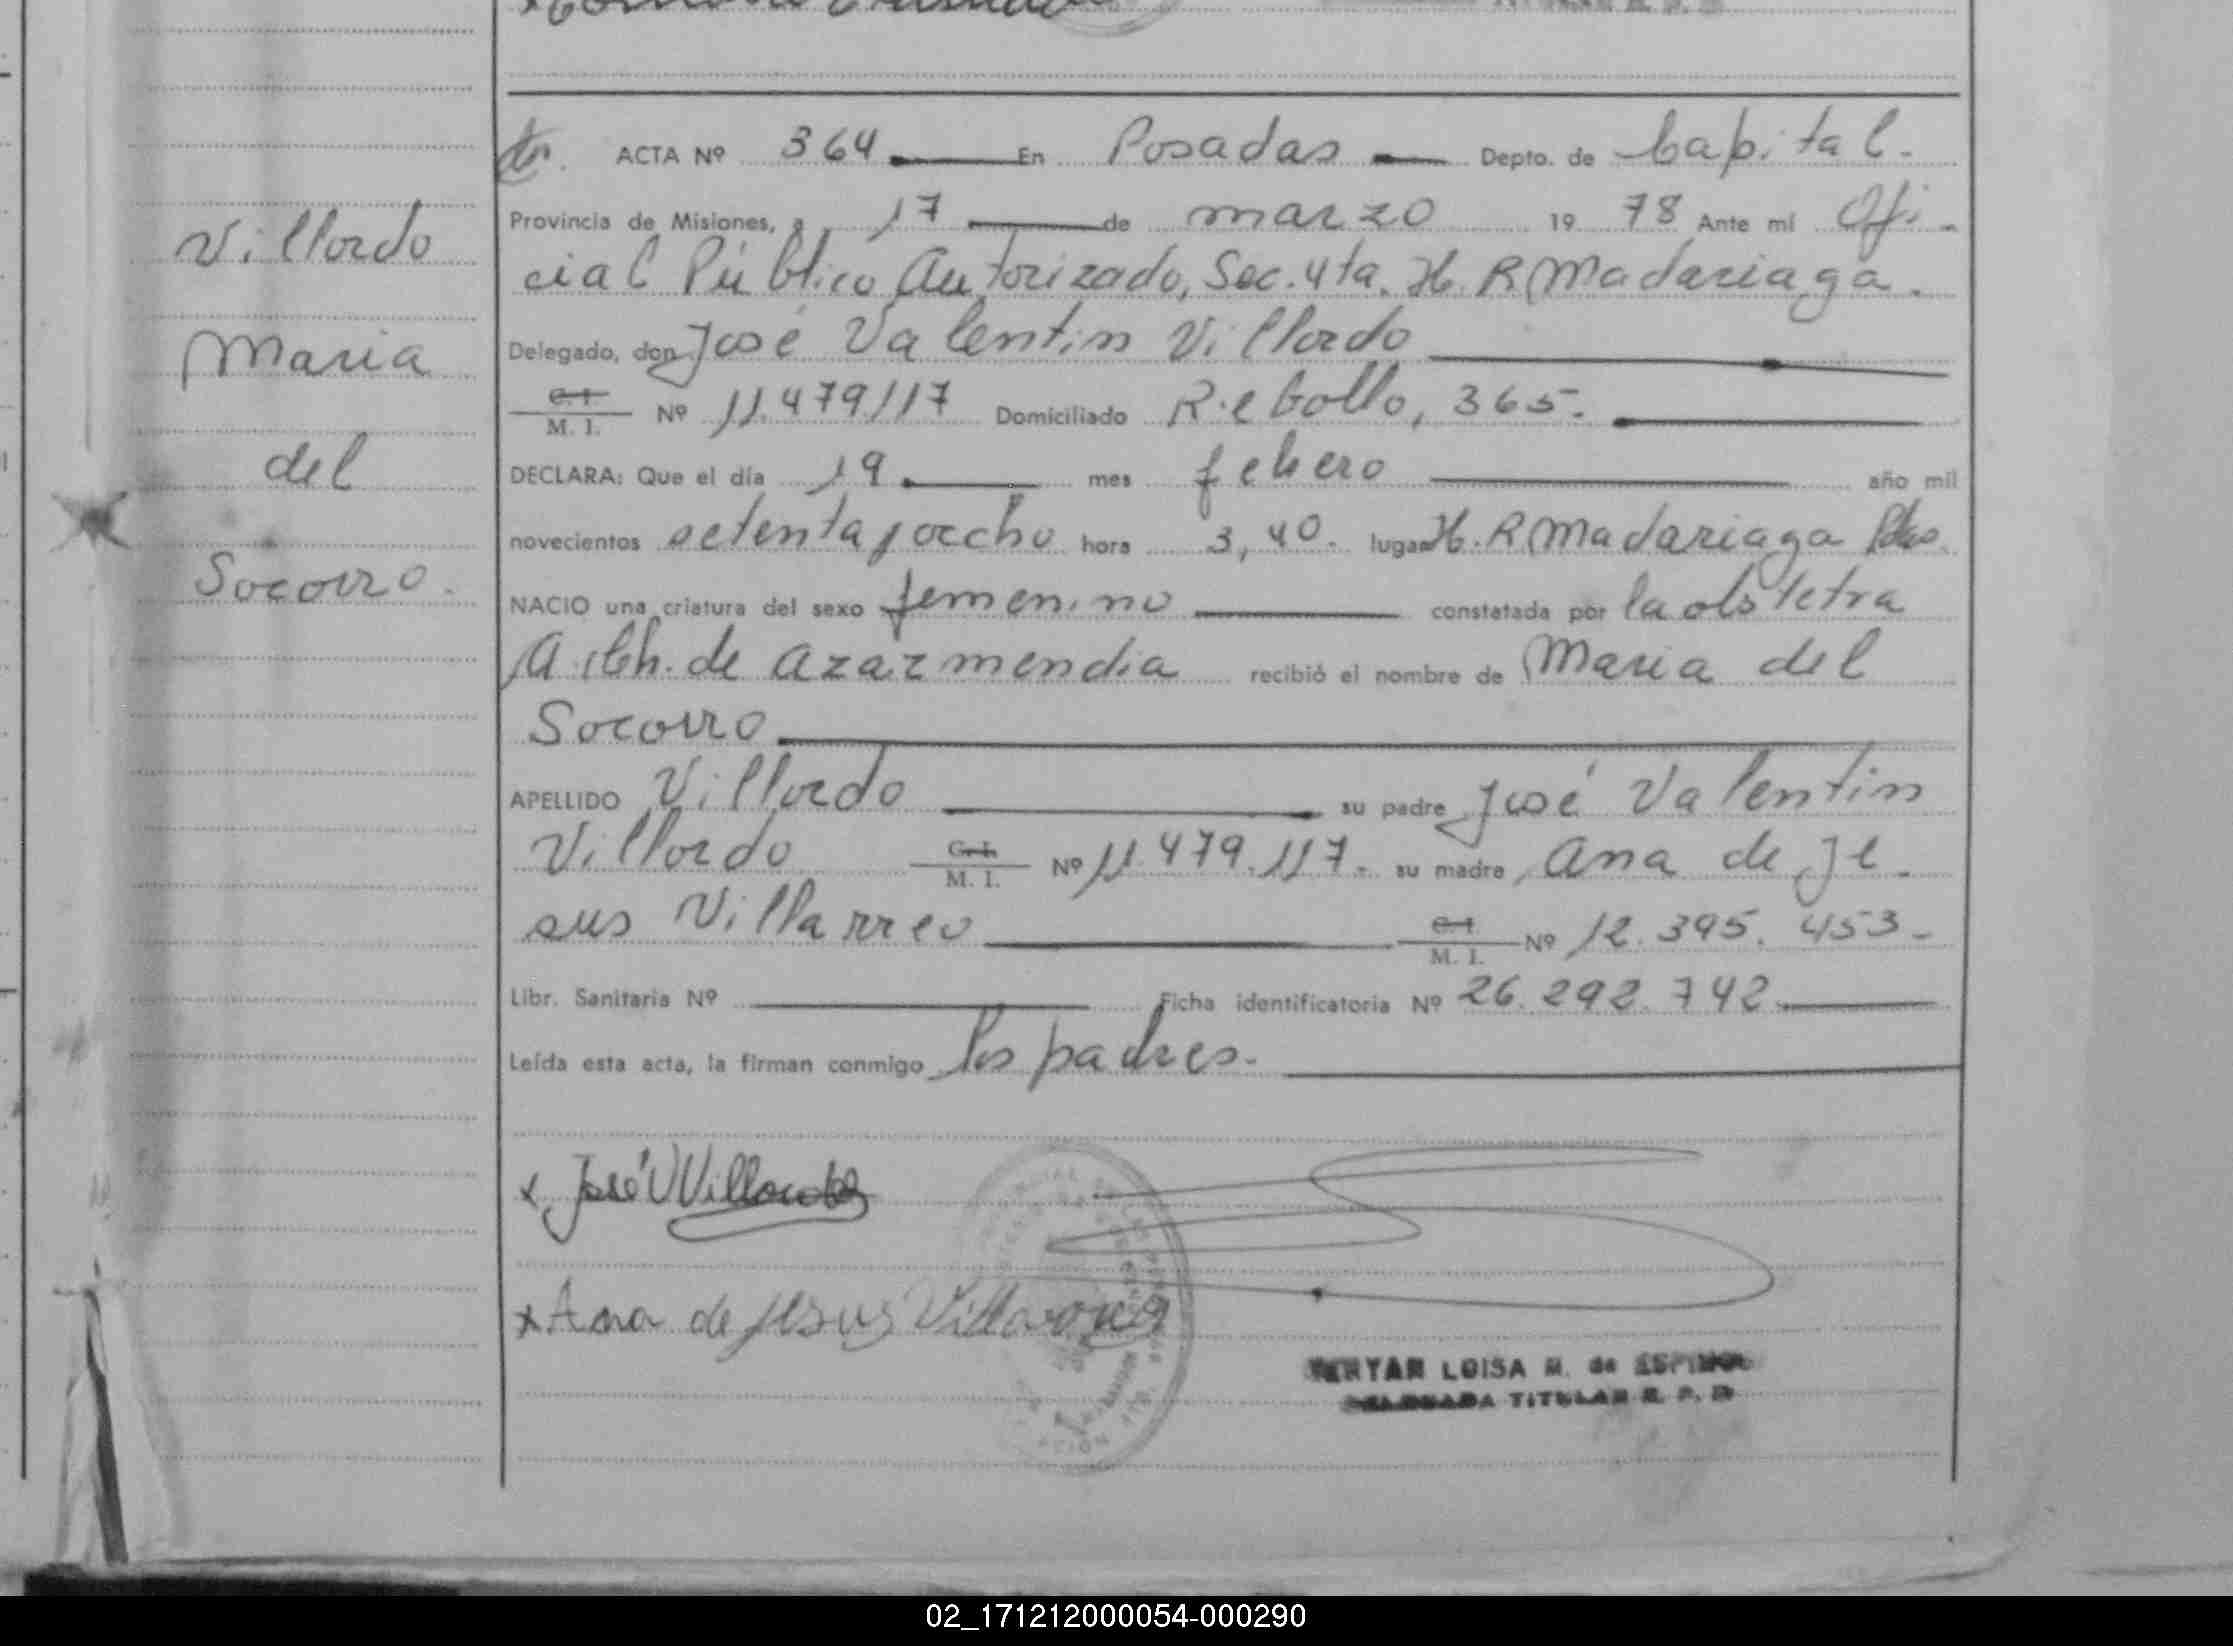 Villordo
Maria
del
Socorro.
ACTA Nº 364 En Posadas Depto. de Capital.
Provincia de Misiones, a 17 de marzo 19 78 Ante mí Ofi-
cial Público Autorizado, Sec. 4ta. H. R Madariaga.
Delegado, don José Valentin Villordo
C.I. M. I. Nº 11.479/117 Domiciliado Rebollo, 365.
DECLARA: Que el día 19 mes febero año mil
novecientos setenta y ocho hora 3,40. lugar H. R Madariaga Pdas.
NACIO una criatura del sexo femenino constatada por la obstetra
de Azarmendia recibió el nombre de Maria del
Socorro
APELLIDO Villordo su padre José Valentin
Villordo C.I. M. I. Nº 11.479.117. su madre Ana de Je-
sus Villarreo C.I. M. I. Nº 12.395.453.-
Libr. Sanitaria Nº Ficha identificatoria Nº 26.292.742
Leída esta acta, la firman conmigo los padres.-
x José V Villordo
x Ana de Jesus
LUISA M. de ESPINOLA
DELEGADA TITULAR R. P. D
02_171212000054-000290